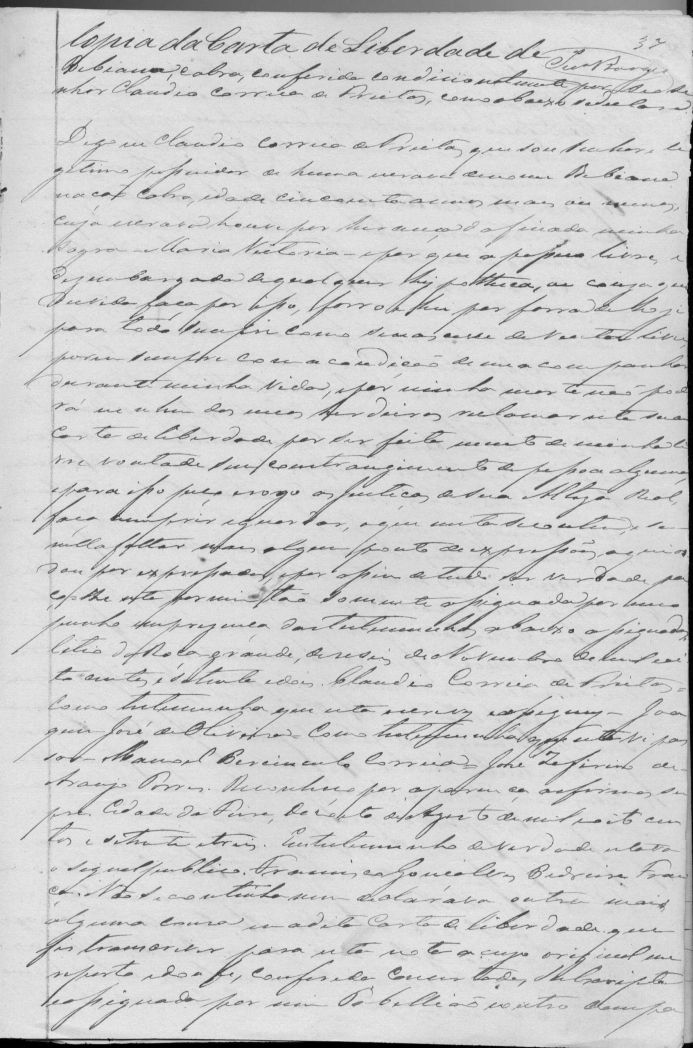 33
Copia da Carta de Liberdade de
Bibiana, cabra, conferida condicionalmente por seo Se
nhor Claudio Correia de Freitas, como abaixo se declara
Digo eu Claudio Correia de Freitas, que sou Senhor e le
getimo possuidor de huma escrava de nome Bibiana
nacão Cabra, idade cincoenta annos mais ou menos,
cuja escrava houve por herança da finada minha
Sogra Maria Victoria e por que a possuo livre, e
Dezembargada de qual quer hypotheca, ou couza que
duvida faça por isso, forro e hei por forra de hoje
para todo sempre como se nascesse de ventre livre
porem sempre com a condição de me acompanhar
durante minha vida, e por minha morte não pode
rá nenhum dos meus herdeiros reclamar esta sua
carta de liberdade por ser feita muito de minha li
vre vontade sem constrangimento de pessoa alguma
e para isso peço e rogo as Justiças de Sua Alteza Real,
faça cumprir e guardar, o que nesta se contem, e se
nella faltar mais algum ponto de expressão, aqui o
dou por expressados, e por assim de tudo ser verdade pa
ço lhe esta por mim tão somente assignada por meo
punho em presença das testemunhas abaixo assignadas
Citio da Roça grande, deseseis de Novembro de mil oi
to centos e setenta e dois. Claudio Correia de Freitas =
Como testemunha que esta escrevy e assigney - Joa
quim José de Oliveira = Como testemunha que esta vi pas
sar - Manoel Correia = José Zeferino de
Araujo . Reconheço por a as firmas su
pra. Cidade da , de Agosto de mil oito cen
tos e setenta e tres. Em testemunho de verdade estava
o signal publico. Francisco Gonçalves Pedreira Fran
ça. Não se continha nem declarava outra mais
alguma cousa em a dita Carta de liberdade que
fiz transcrever para esta nota a cujo original me
reporto e dou fé, conferida concertada, Subscripta
e assignada por mim Tabellião e outro compa